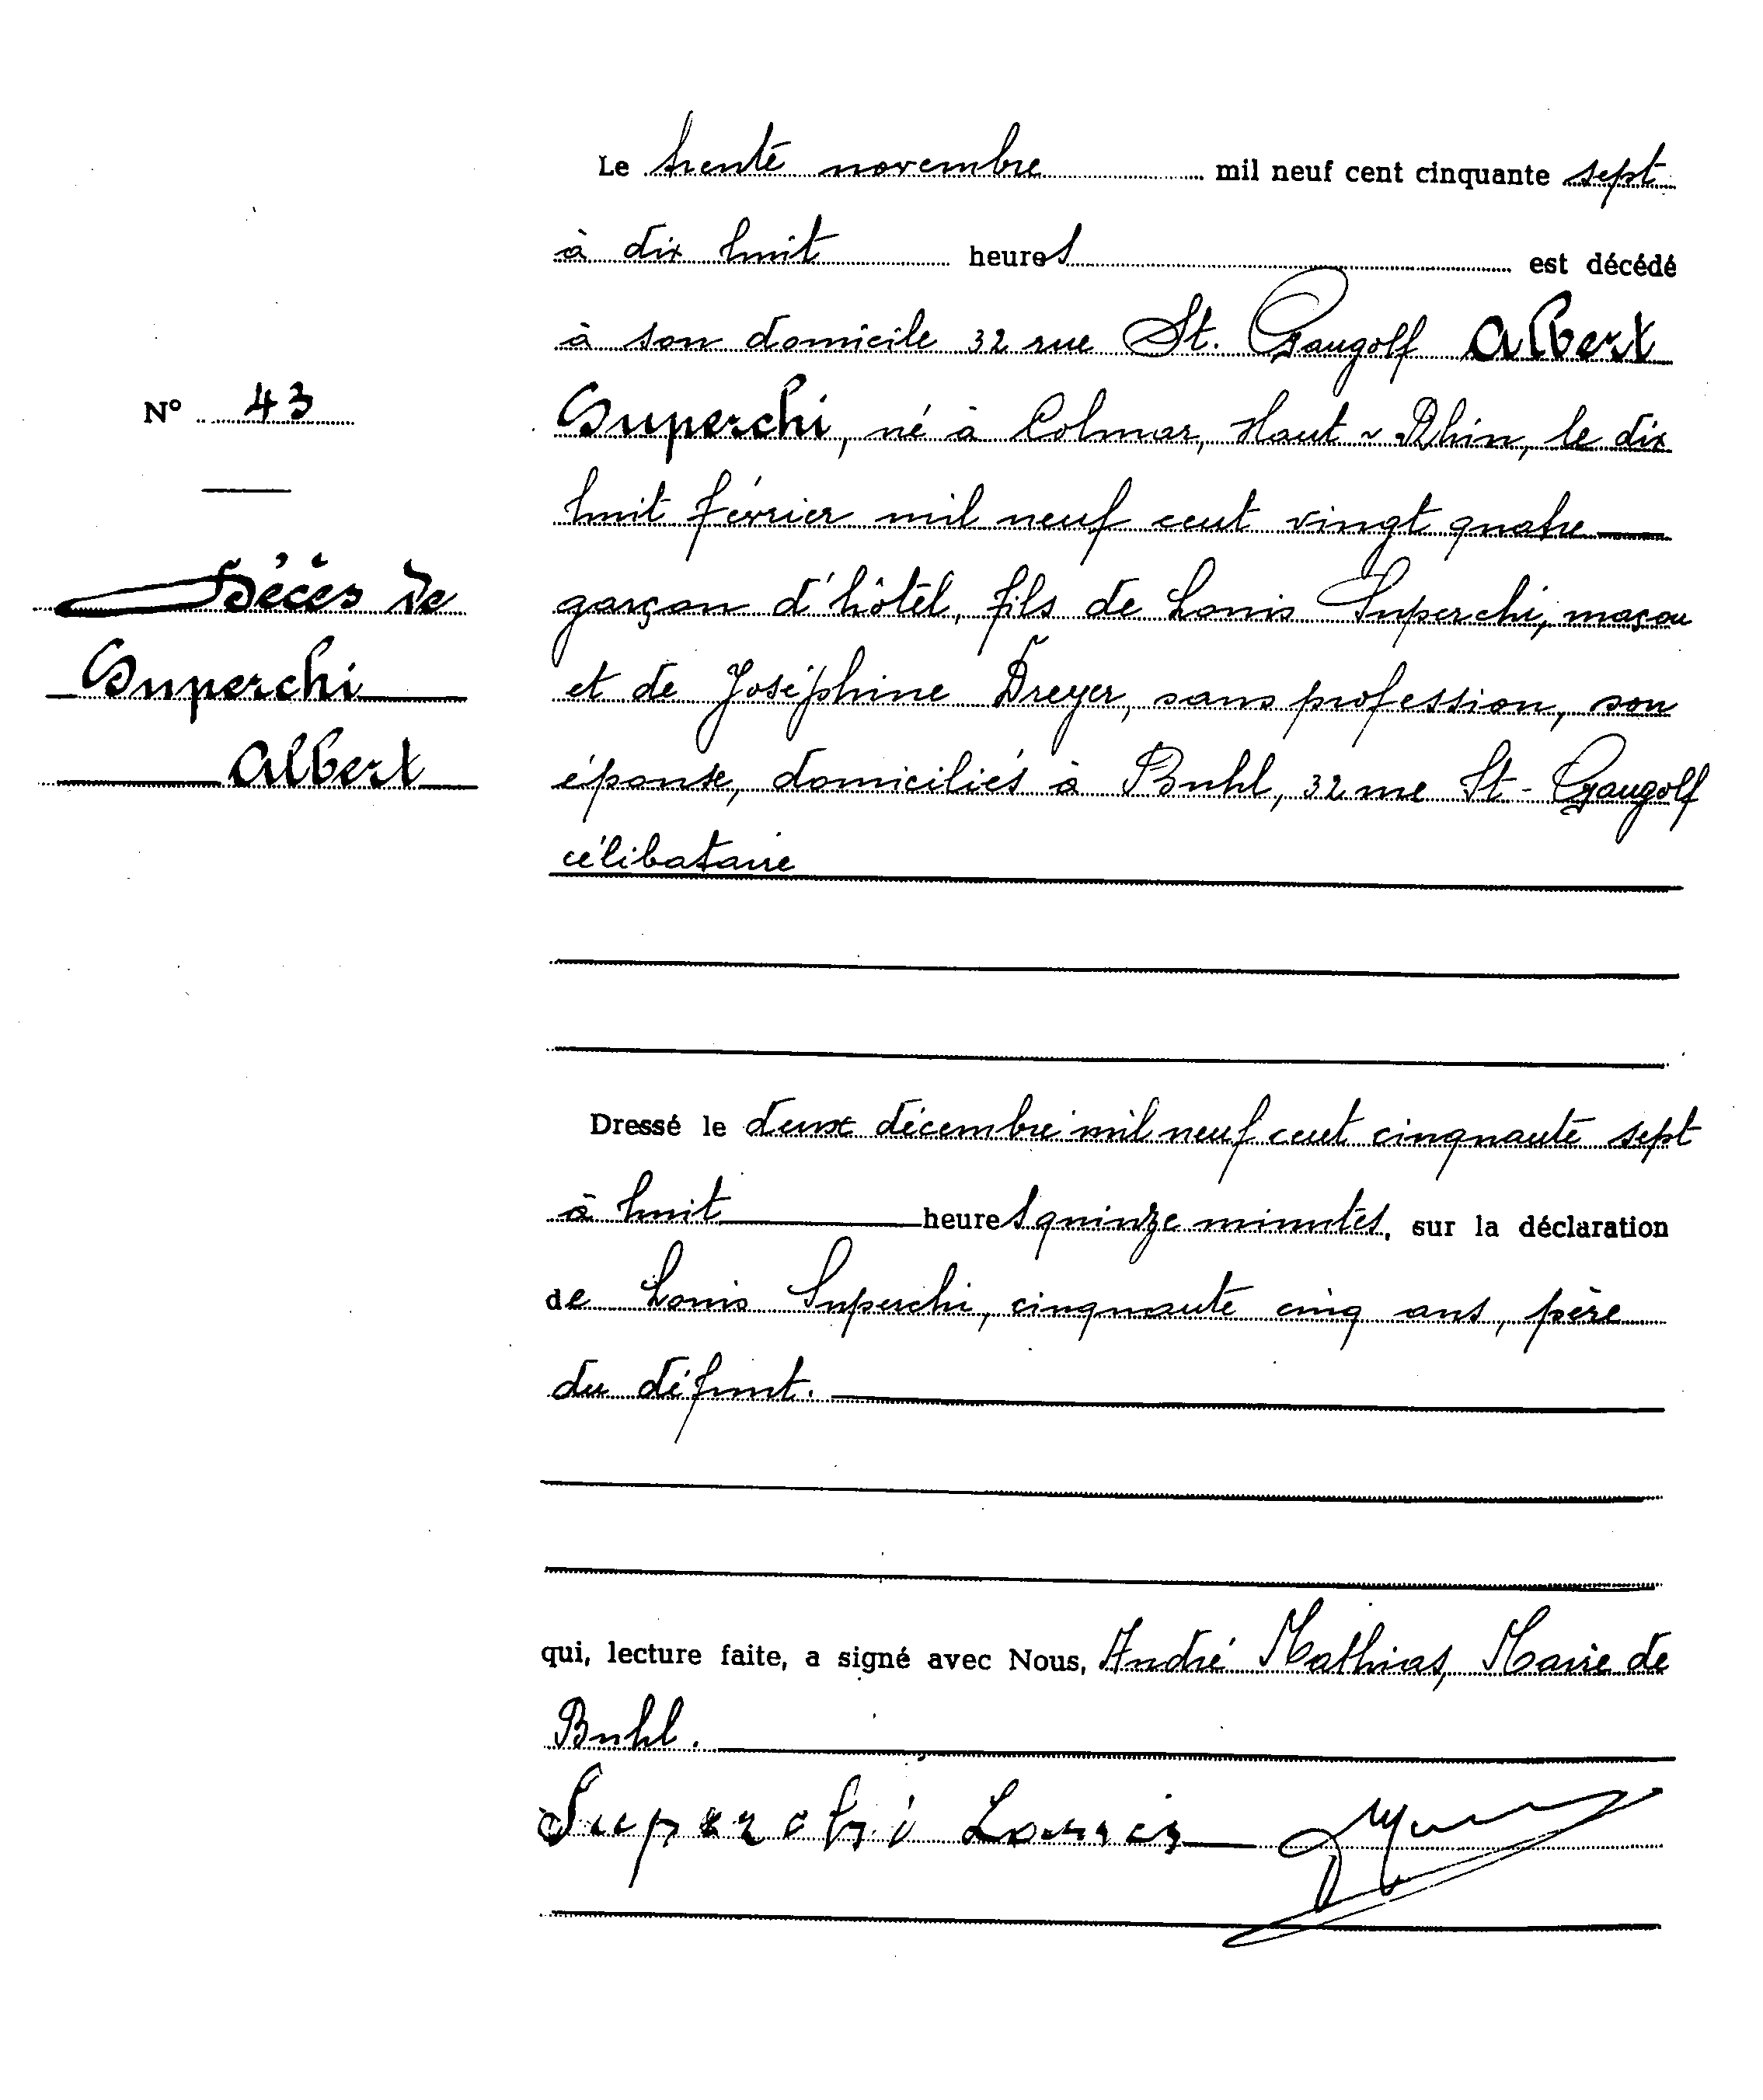 Le trente novembre mil neuf cent cinquante sept
à dix huit heures est décédé
à son domicile 32 rue St. Gangolf Albert
Superchi, né à Colmar, Haut-Rhin, le dix
huit février mil neuf cent vingt quatre
garçon d'hôtel, fils de Louis Superchi, maçon
et de Joséphine Dreyer, sans profession, son
épouse, domiciliés à Buhl, 32 rue St-Gangolf
célibataire
N° 43
Décès de
Superchi
Albert
Dressé le deux décembre mil neuf cent cinquante sept
à huit heures quinze minutes, sur la déclaration
de Louis Superchi, cinquante cinq ans, père
du défunt.
qui, lecture faite, a signé avec Nous, André Mathias, Maire de
Buhl.
Superchi Louis